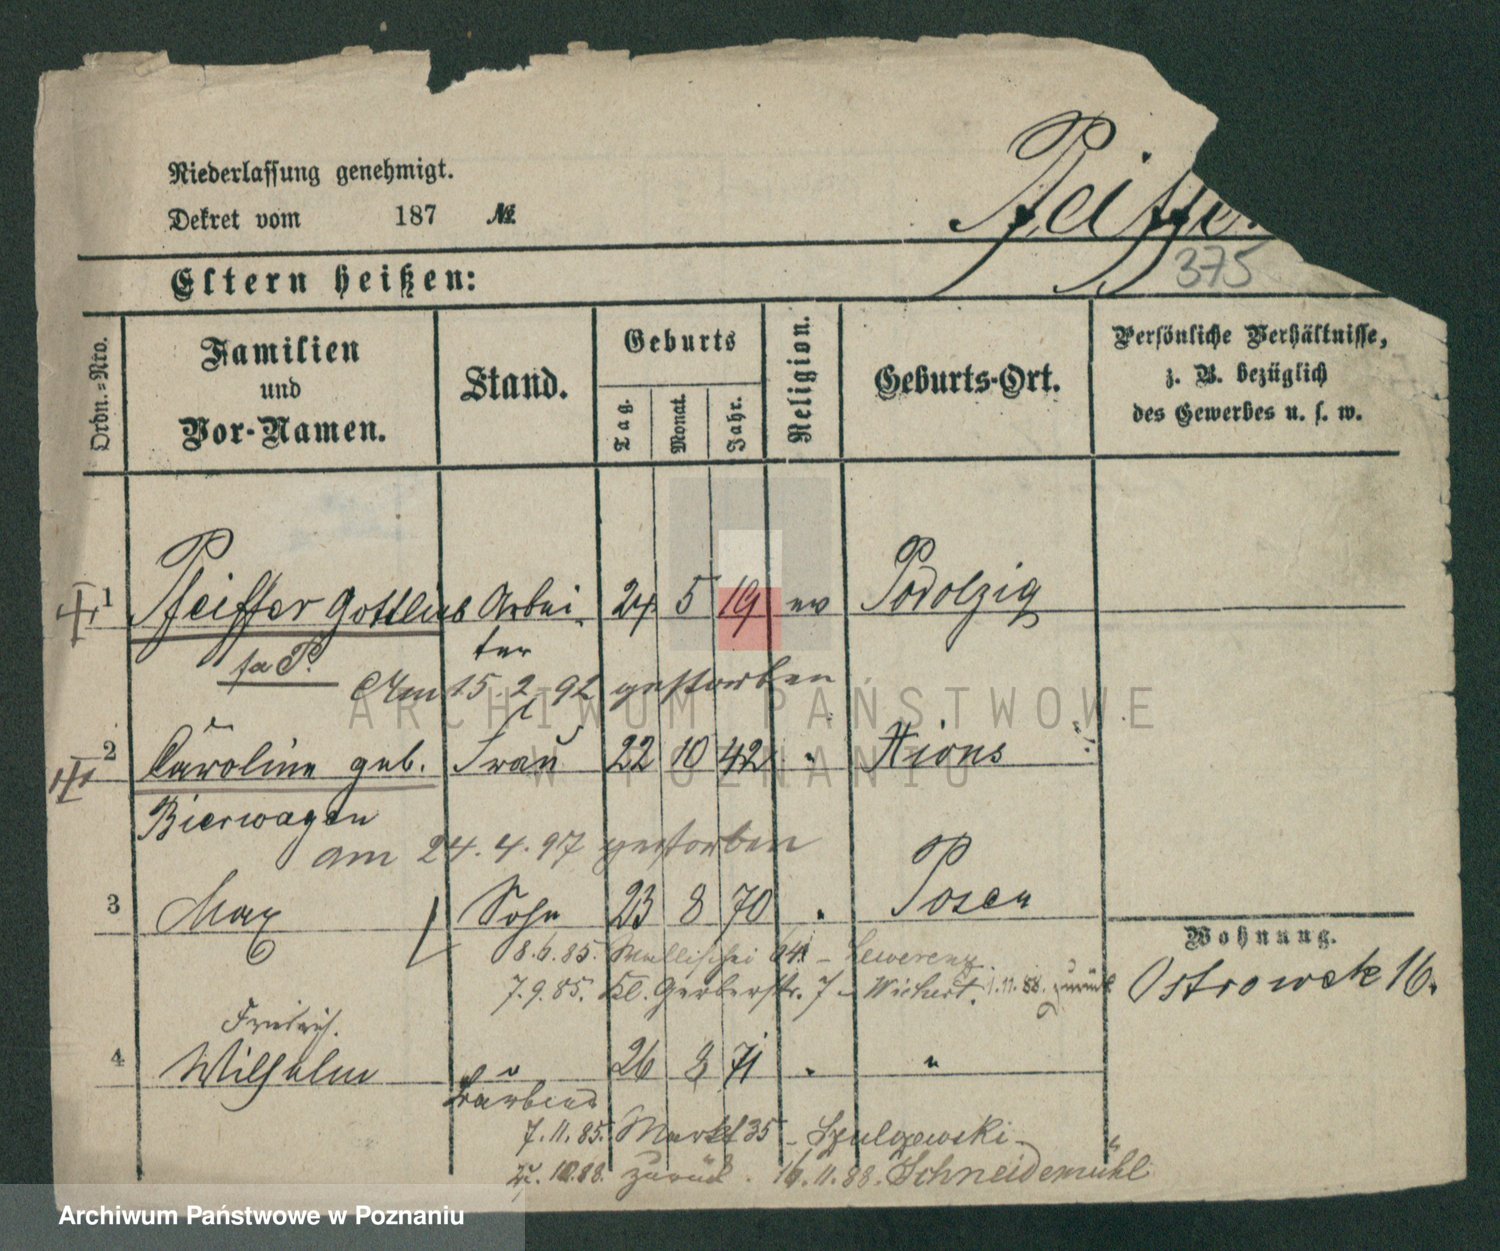 Niederlassung genehmigt.
Dekret vom 187 №
Pfeiffer
375
Eltern heißen:
Ordn.-Nro.
Familien
und
Vor-Namen.
Stand.
Geburts
Tag.
Monat.
Jahr.
Religion.
Geburts-Ort.
Persönliche Verhältnisse,
z. B. bezüglich
des Gewerbes u. s. w.
1 Pfeiffer Gottlieb Arbei- 24 5 19 ev Podolzig
ter
Am 15. 2. 92 gestorben
2 Caroline geb. Frau 22 10 42 " Xions
Bierwagen
am 24. 4. 97 gestorben
3 Max Sohn 23 8 70 " Posen
8.6.85. Wallischei 64 - Lewerenz
7.9.85. Kl. Gerberstr. 7 - Wichert. 1.11.88. zurück
Wohnung.
Ostrowek 16.
Friedrich.
4 Wilhelm " 26 8 71 " "
7.11.85. Markt 35 - Szulczewski
zurück. 16.11.88. Schneidemühl
ARCHIWUM PAŃSTWOWE
W POZNANIU
Archiwum Państwowe w Poznaniu